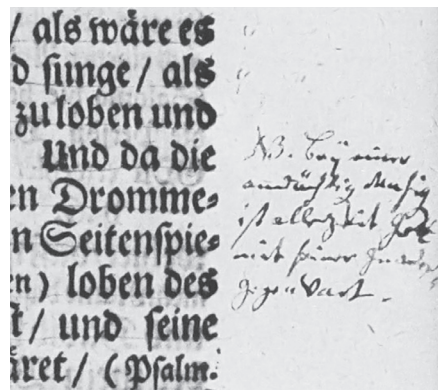 / als wäre es
d singe / als
zu loben und
Und da die
en Dromme⸗
n Seitenspie⸗
en) loben des
t / und seine
äret / (Psalm.
NB. Bey einer
andächtig Musiq
ist allezeit Gott
mit seiner Gnaden
Gegenwart.